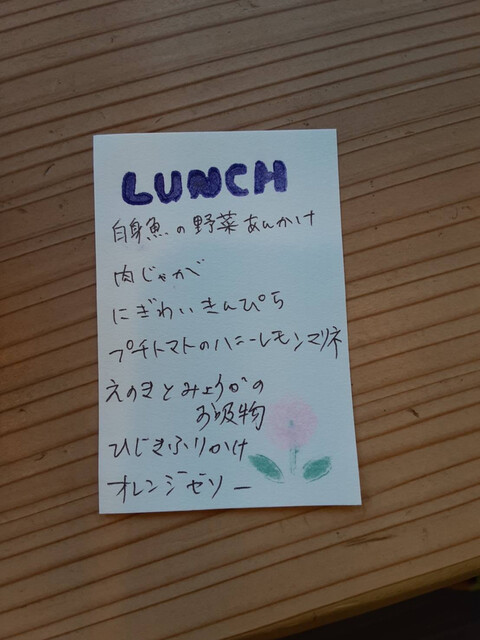 LUNCH
白身魚の野菜あんかけ
肉じゃが
にぎわいきんぴら
プチトマトのハニーレモンマリネ
えのきとみょうがの
お吸物
ひじきふりかけ
オレンジゼリー